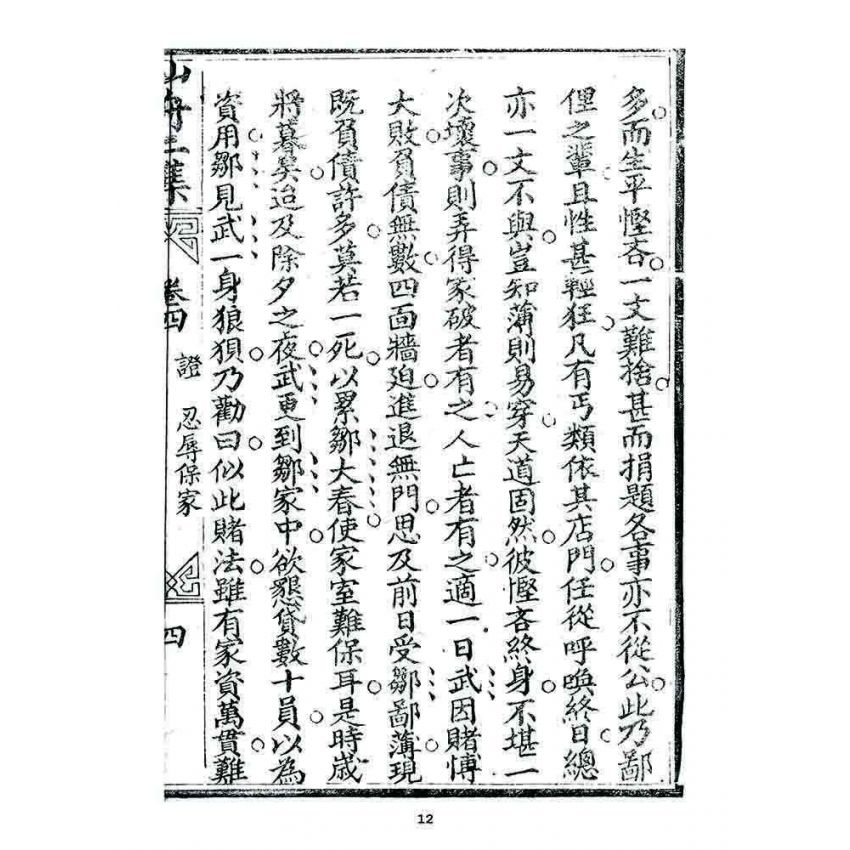 多而生平慳吝一文難捨甚而捐題各事亦不從公此乃鄙
俚之輩且性甚輕狂凡有丐類依其店門任從呼喚終日總
亦一文不與豈知薄則易穿天道固然彼慳吝終身不堪一
次壞事則弄得家破者有之人亡者有之適一日武因賭博
大敗負債無數四面牆廹進退無門思及前日受鄒鄙薄現
既負債許多莫若一死以累鄒大春使家室難保耳是時歲
將暮矣迨及除夕之夜武更到鄒家中欲懇貸數十員以為
資用鄒見武一身狼狽乃勸曰似此賭法雖有家資萬貫難
集 卷四 證 忍辱保家 四
12